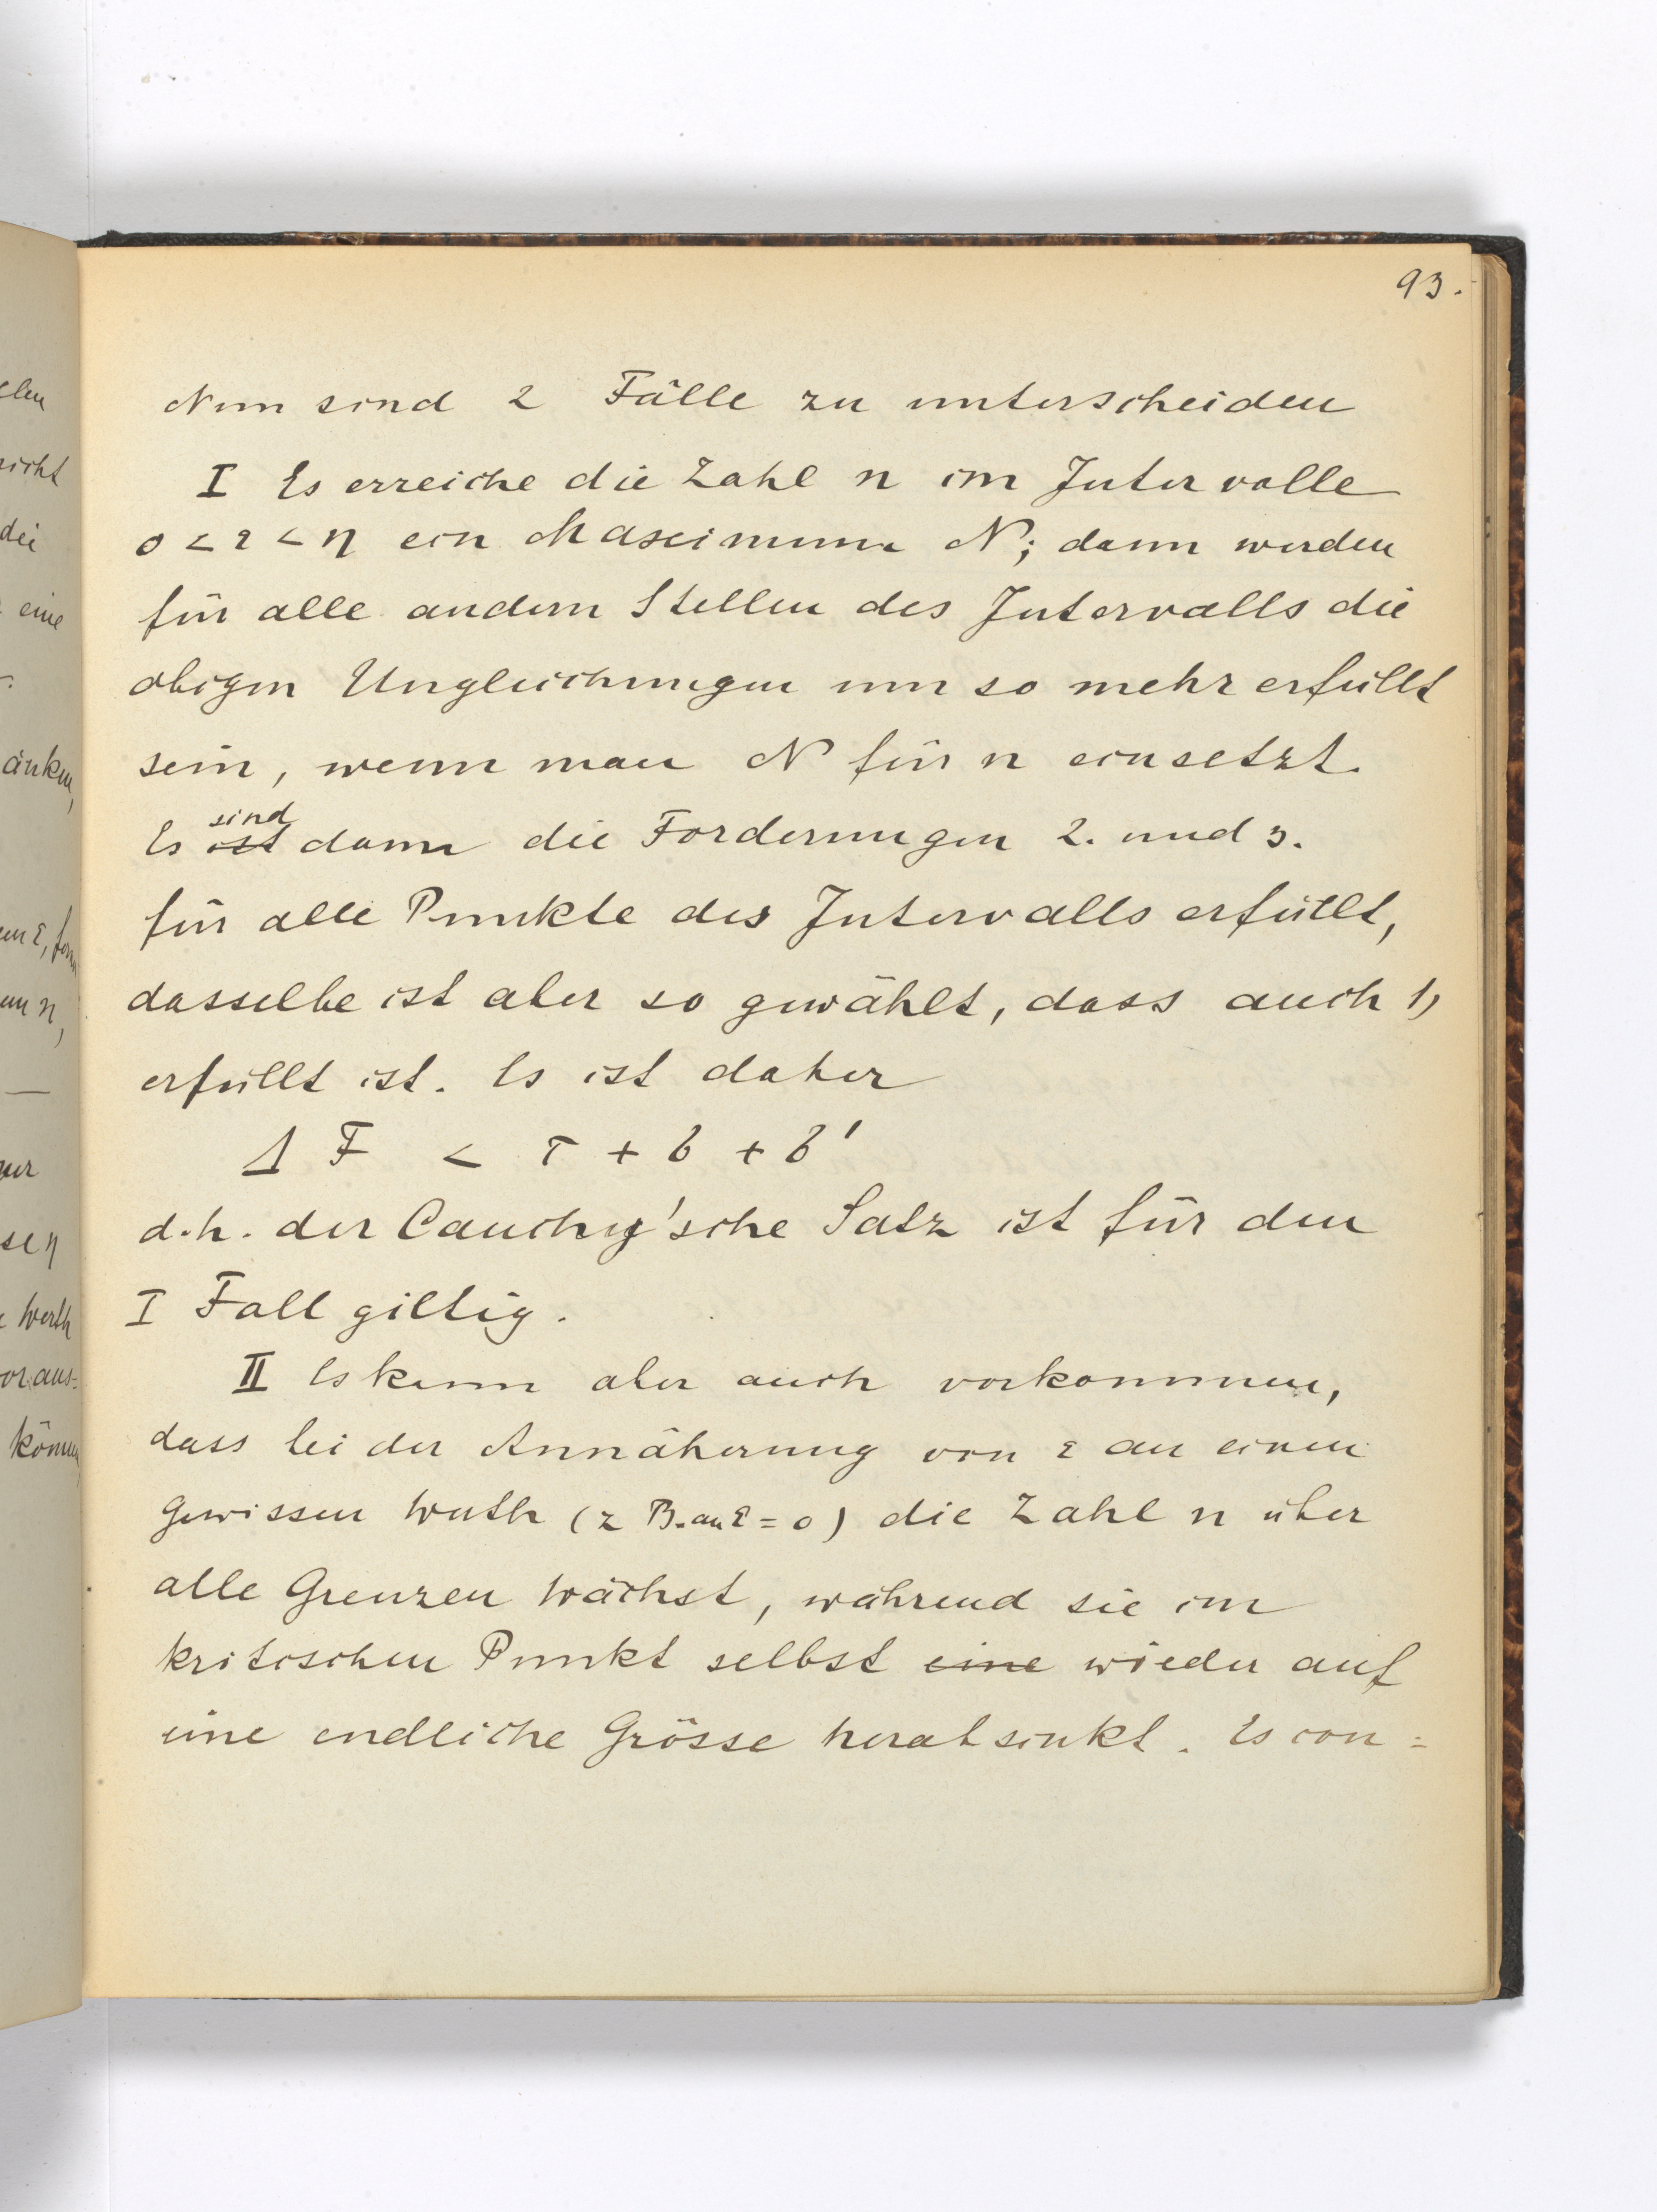 93.
Nun sind 2 Fälle zu unterscheiden
I Es erreiche die Zahl n im Intervalle
0 < ε < η ein Maximum N; dann werden
für alle andern Stellen des Intervalls die
obigen Ungleichungen um so mehr erfüllt
sein, wenn man N für n einsetzt.
sind
Es ist dann die Forderungen 2. und 3.
für alle Punkte des Intervalls erfüllt,
dasselbe ist aber so gewählt, dass auch 1)
erfüllt ist. Es ist daher
Δ F < τ + σ + σ'
d.h. der Cauchy'sche Satz ist für den
I Fall giltig.
II Es kann aber auch vorkommen,
dass bei der Annäherung von ε an einen
gewissen Werth (z B. an ε = 0) die Zahl n über
alle Grenzen wächst, während sie im
kritischen Punkt selbst eine wieder auf
eine endliche Grösse herabsinkt. Es con=